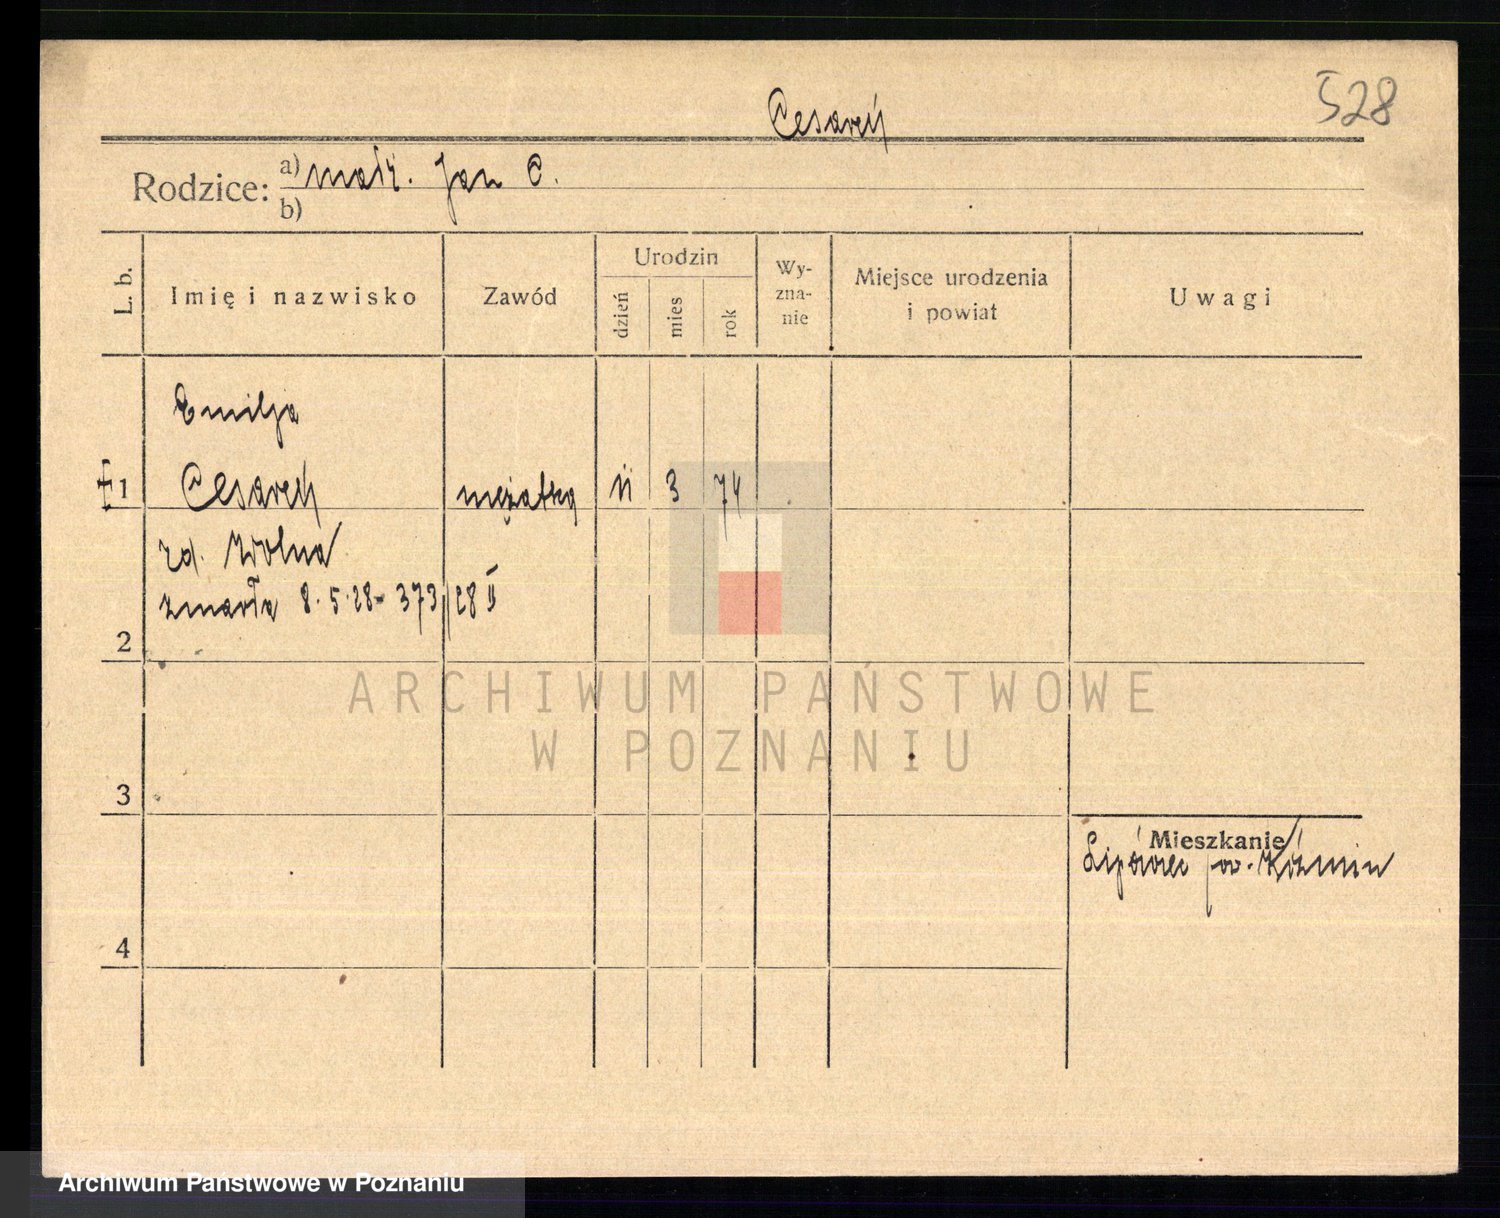 528
Cesarek
Rodzice: a) małż. Jan C.
b)
L. b.
Imię i nazwisko
Zawód
Urodzin
dzień
mies
rok
Wy-
zna-
nie
Miejsce urodzenia
i powiat
Uwagi
Emilja
1 Cesarek mężatka 11 3 74
zd. Wolna
zmarła 8.5.28 - 373/28 II
2
ARCHIWUM PAŃSTWOWE
W POZNANIU
3
Mieszkanie
Lipówiec pow. Koźmin
4
Archiwum Państwowe w Poznaniu